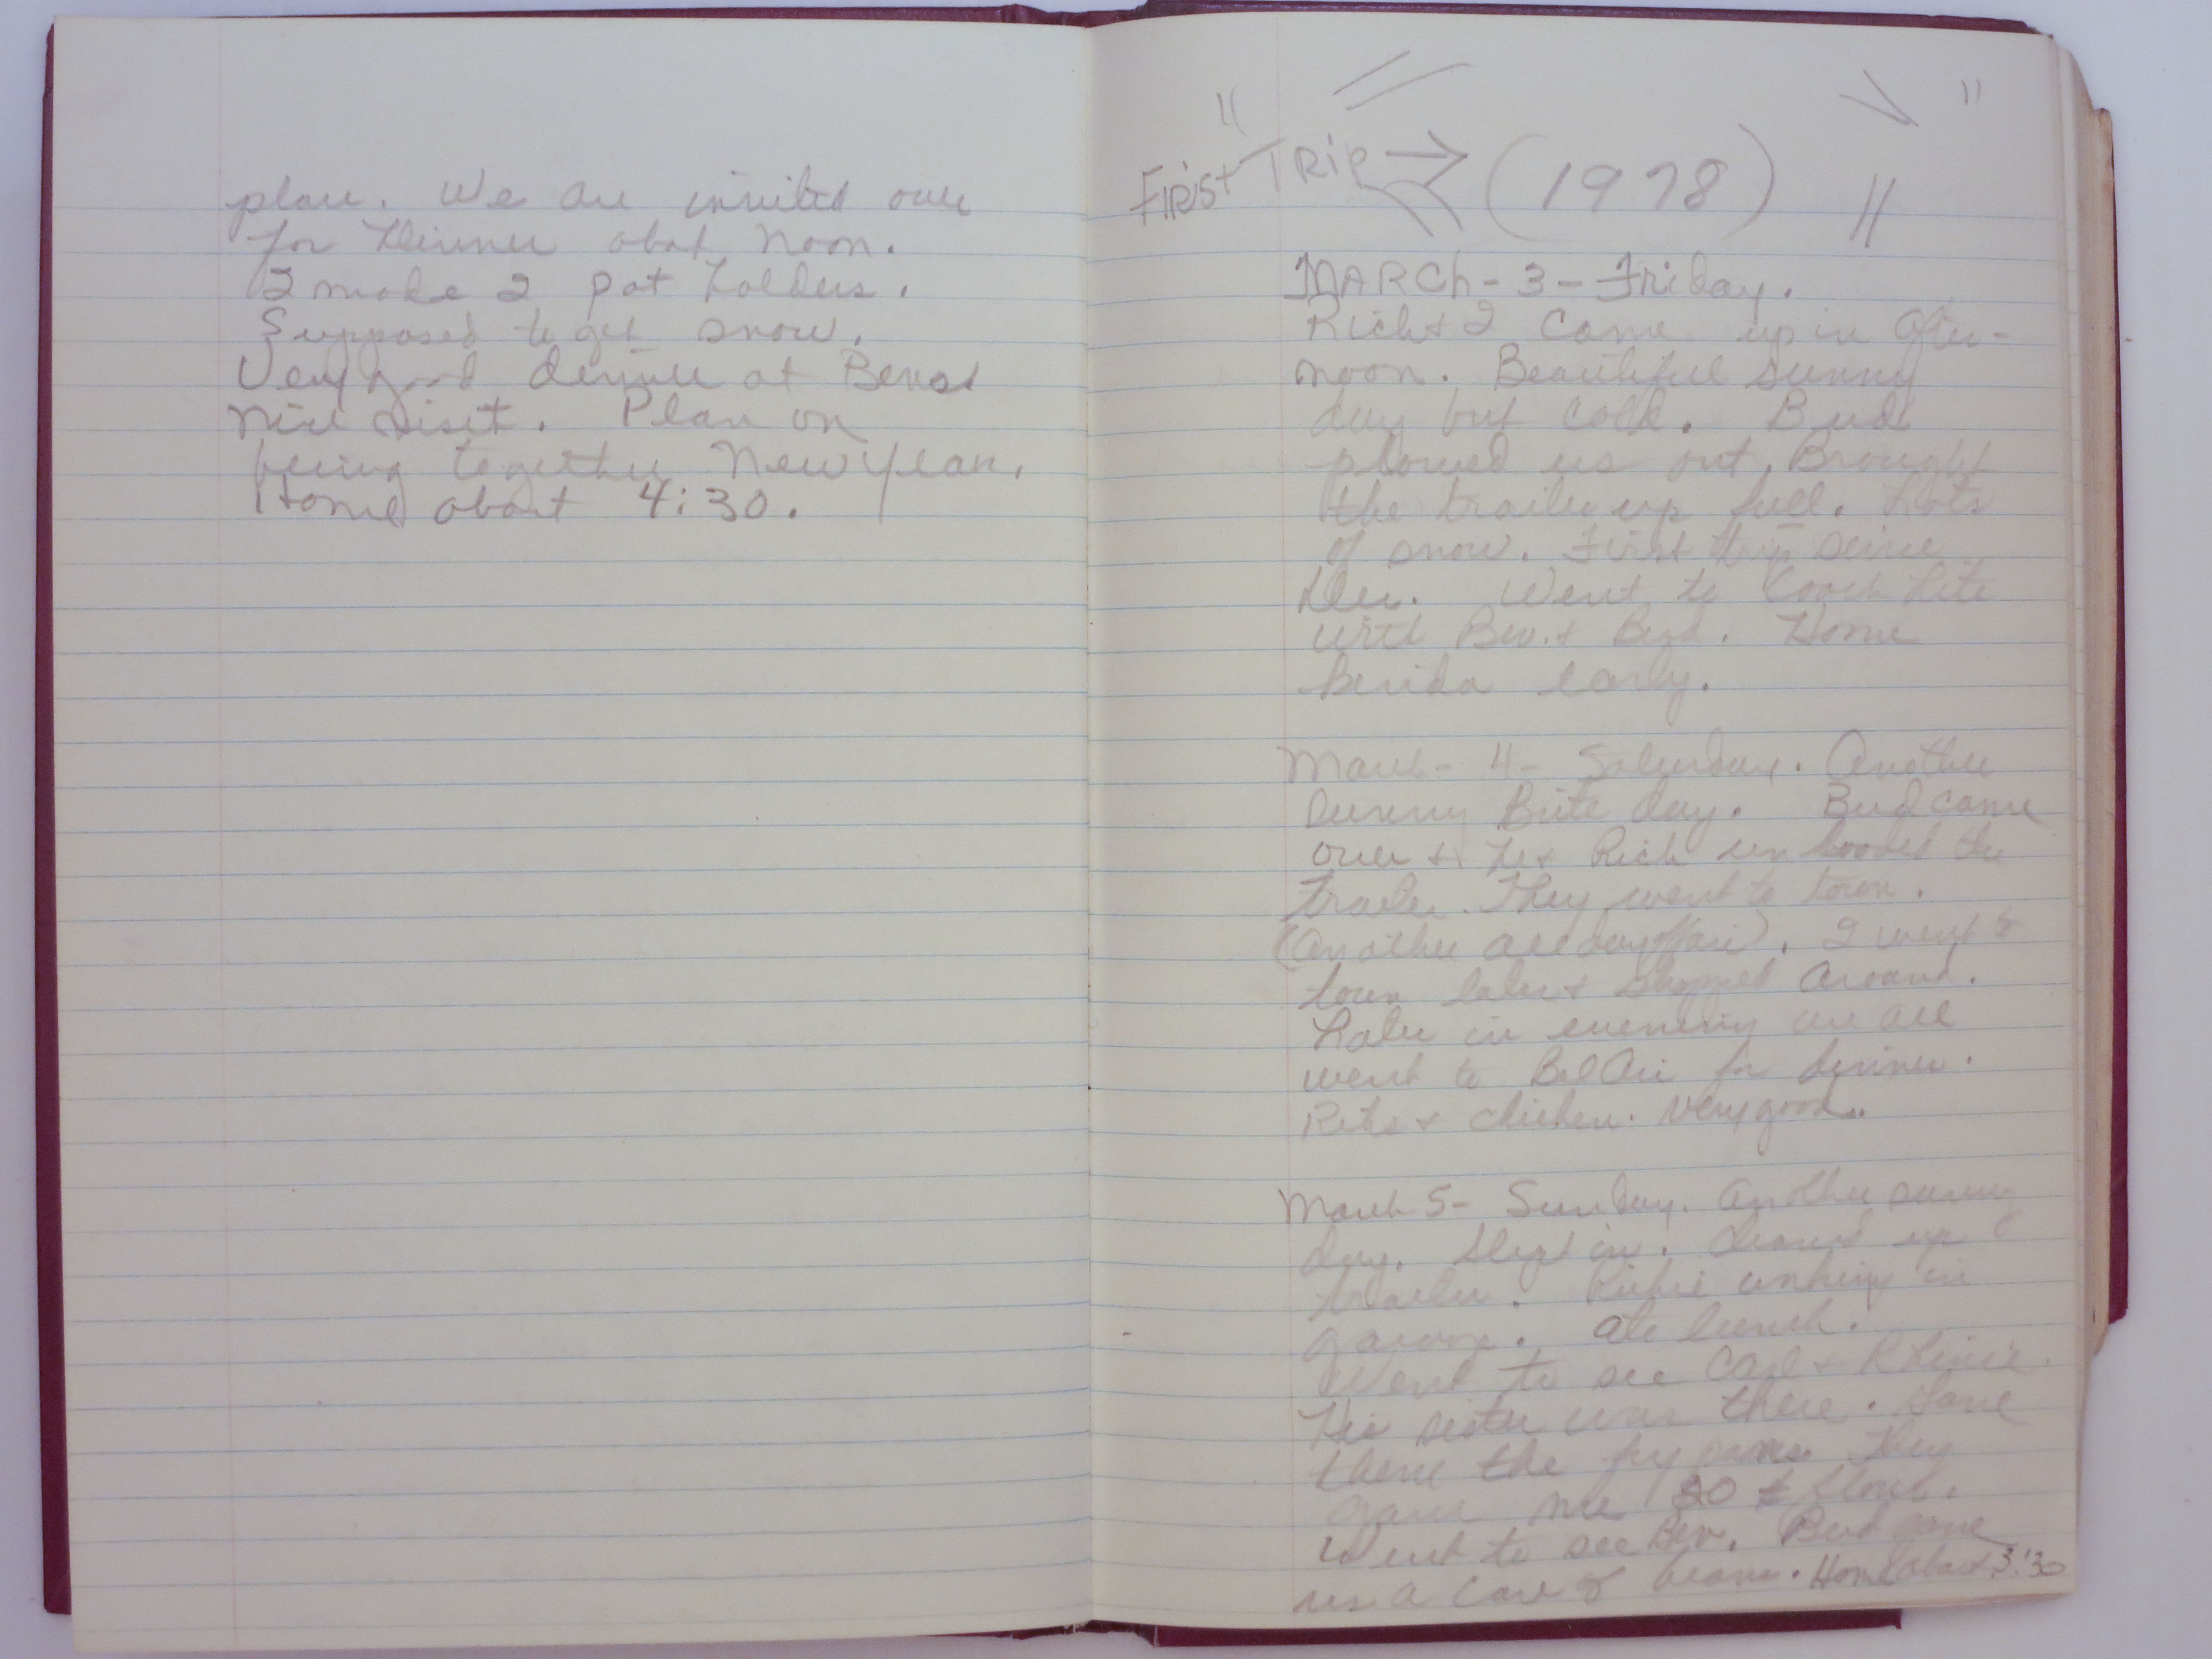 place. We are invited over
for Dinner abot Noon.
I made 2 pot holders.
Supposed to get snow.
Very good dinner at Bevs
nice visit. Plan on
being together New Year.
Home about 4:30.
" First TRip → (1978) "
MARCh - 3 - Friday.
Rich & I Came up in After-
noon. Beautiful Sunny
day but cold. Bud
plowed us out. Brought
the trailer up full. Lots
of snow. First trip since
Dec. Went to Coach Lite
with Bev. & Bud. Home
early.
March - 4 - Saturday. Another
Sunny Brite day. Bud came
over & he & Rich un loaded the
trailer. They went to town.
(Another all day affair). I went to
town later & shopped around.
Later in evening we all
went to Bel Air for dinner.
Ribs & chicken. Very good.
March 5 - Sunday. Another sunny
day. Slept in. Cleaned up
trailer. Richie working in
garage. Ate lunch.
Went to see Carl &
His sister was there. Gave
them the fry pans. They
gave me 20 # flour.
Went to see Bev. Bud gave
us a case of beans. Home about 3:30